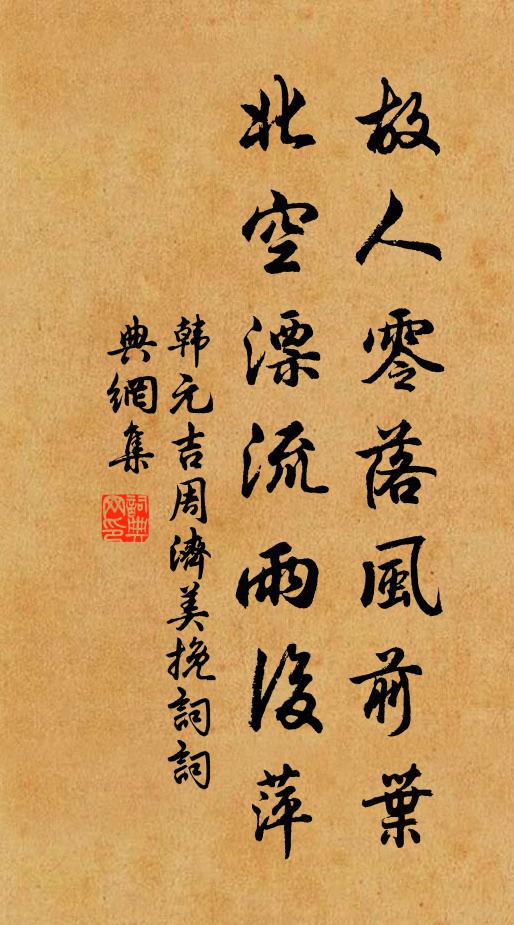 故人零落風前葉
北空漂流雨後萍
韩元吉周濟美挽詞詞
典網集
詞典網印